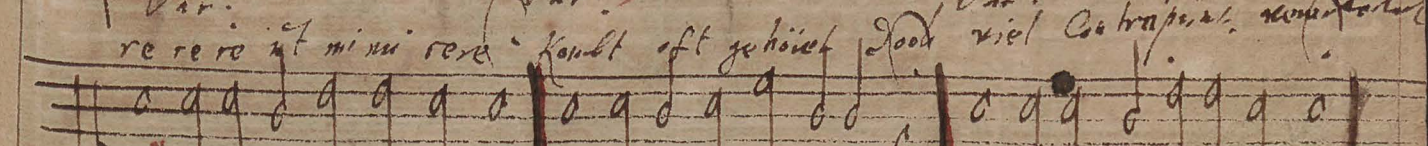 Var. Var. Var.
re re re ut mi mi re re Kombt oft gehöret Doch viel Contrapunct.